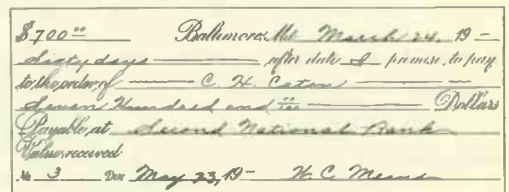 $700 00 Baltimore, Md. March 24, 19 -
Sixty days after date I promise to pay
to the order of C. H. Caton
Seven Hundred and 00/100 Dollars
Payable at Second National Bank
Value received
No 3 Due May 23, 19- W. C. Means